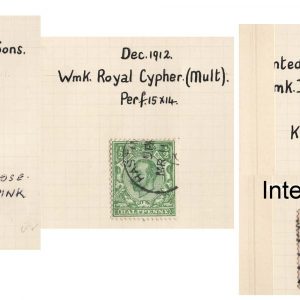 Sons.
Dec. 1912.
Wmk. Royal Cypher. (Mult).
Perf. 15 x 14.
PINK
HALFPENNY
nted
mk.
K
Inte